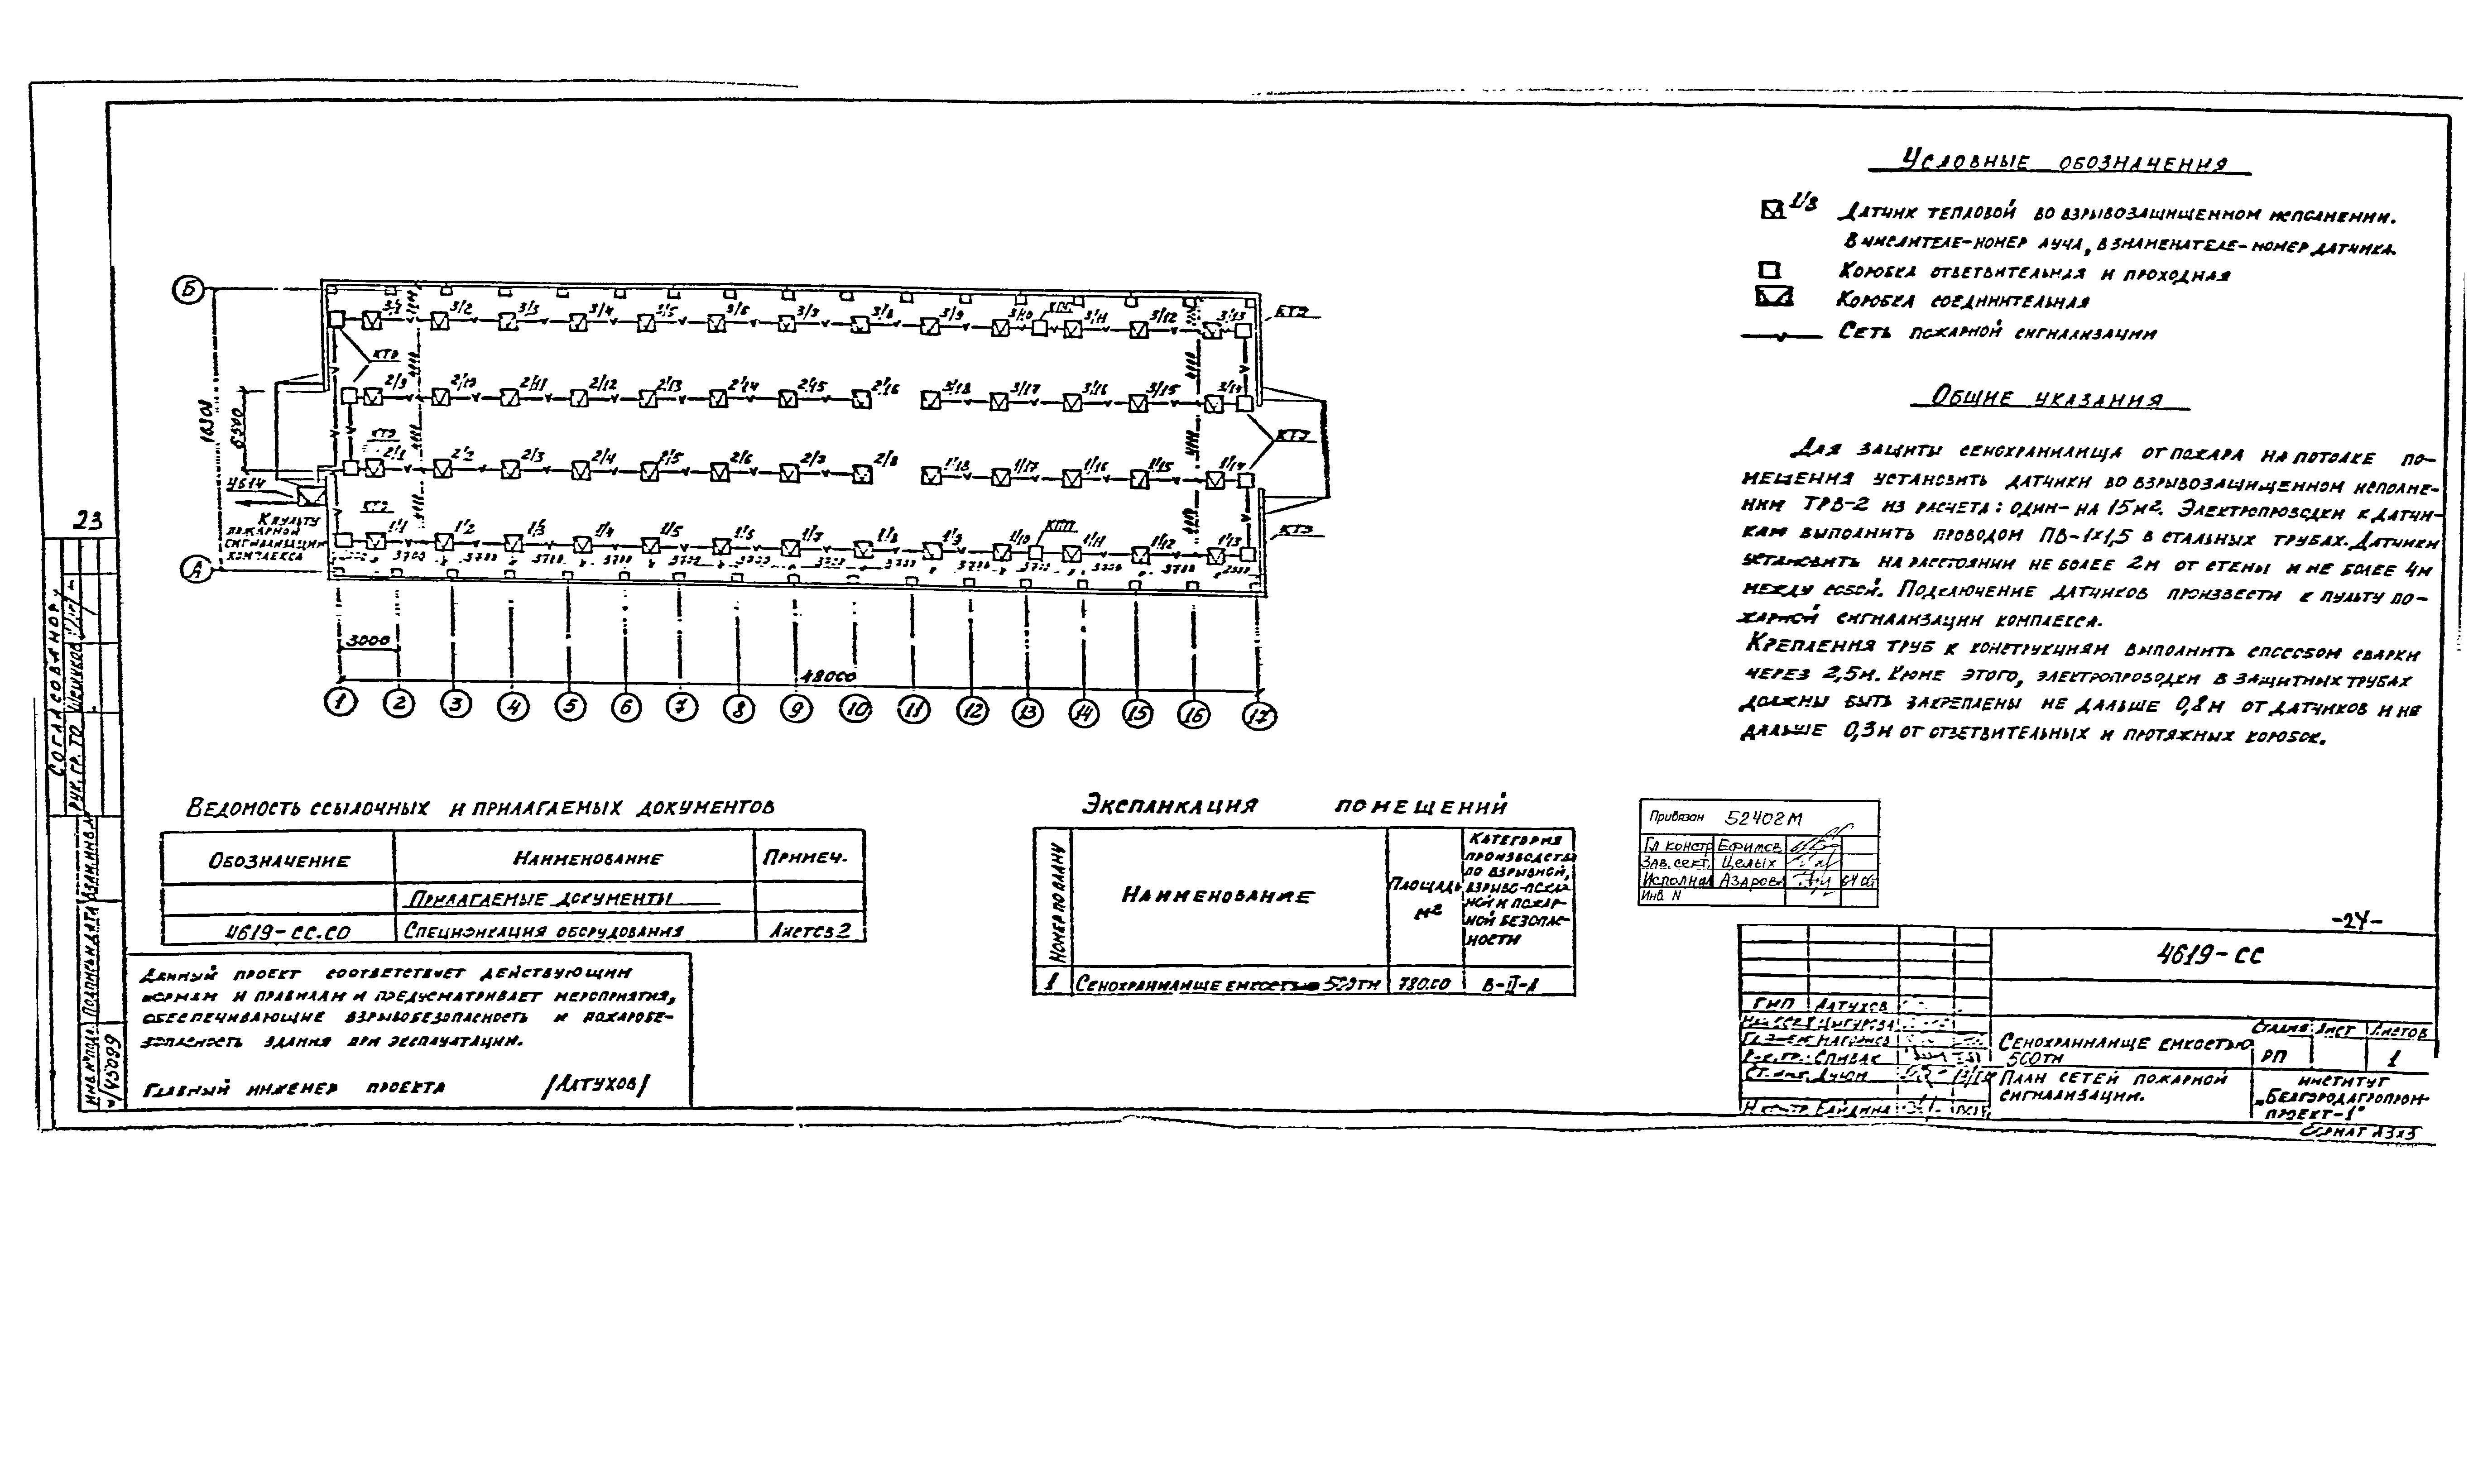 Условные обозначения
1/8 Датчик тепловой во взрывозащищенном исполнении.
В числителе-номер луча, в знаменателе-номер датчика.
Коробка ответвительная и проходная
Коробка соединительная
Сеть пожарной сигнализации
Общие указания
Для защиты сенохранилища от пожара на потолке по-
мещения установить датчики во взрывозащищенном исполне-
нии ТРВ-2 из расчета: один- на 15м². Электропроводки к датчи-
кам выполнить проводом ПВ-1х1,5 в стальных трубах. Датчики
установить на расстоянии не более 2м от стены и не более 4м
между собой. Подключение датчиков произвести к пульту по-
жарной сигнализации комплекса.
Крепления труб к конструкциям выполнить способом сварки
через 2,5м. Кроме этого, электропроводки в защитных трубах
должны быть закреплены не дальше 0,8м от датчиков и не
дальше 0,3м от ответвительных и протяжных коробок.
Б
3/1 3/2 3/3 3/4 3/5 3/6 3/7 3/8 3/9 3/10 3/11 3/12 3/13
2/9 2/10 2/11 2/12 2/13 2/14 2/15 2/16 3/18 3/17 3/16 3/15 3/14
2/1 2/2 2/3 2/4 2/5 2/6 2/7 2/8 1/18 1/17 1/16 1/15 1/14
У614
К пульту
пожарной
сигнализации
комплекса
1/1 1/2 1/3 1/4 1/5 1/6 1/7 1/8 1/9 1/10 КПП 1/11 1/12 1/13
3700 3700 3700 3700
А
6300
3000
48000
1 2 3 4 5 6 7 8 9 10 11 12 13 14 15 16 17
23
Согласовано:
Рук. гр. ТО
Взам.инв.№
Подпись и дата
Инв.№ подл.
Ведомость ссылочных и прилагаемых документов
Обозначение Наименование Примеч.
Прилагаемые документы
4619-СС.СО Спецификация оборудования Листов 2
Данный проект соответствует действующим
нормам и правилам и предусматривает мероприятия,
обеспечивающие взрывобезопасность и пожаробе-
зопасность здания при эксплуатации.
Главный инженер проекта /Алтухов/
Экспликация помещений
Номер по плану Наименование Площадь м² Категория
производств
по взрывной,
взрыво-пожар-
ной и пожар-
ной безопас-
ности
1 Сенохранилище емкостью 500тн 780.00 В-II-А
Привязан 52402М
Гл констр Ефимов
Зав. сект. Целых
Исполнил Азарова
Инв. N
-24-
4619-СС
ГИП Алтухов
Рук.гр. Спивак
Сенохранилище емкостью
500тн
Стадия Лист Листов
РП 1
План сетей пожарной
сигнализации.
институт
„Белгородагропром-
проект-1"
Формат А3х3